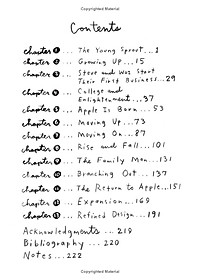 Copyrighted Material
Contents
chapter 1 ... The Young Sprout...1
chapter 2 ... Growing Up...15
chapter 3 ... Steve and Woz Start
Their First Business...29
chapter 4 ... College and
Enlightenment...37
chapter 5 ... Apple Is Born...53
chapter 6 ... Moving Up...73
chapter 7 ... Moving On...87
chapter 8 ... Rise and Fall...101
chapter 9 ... The Family Man...131
chapter 10 ... Branching Out...137
chapter 11 ... The Return to Apple...151
chapter 12 ... Expansion...169
chapter 13 ... Refined Design...191
Acknowledgments ... 218
Bibliography ... 220
Notes ... 222
Copyrighted Material